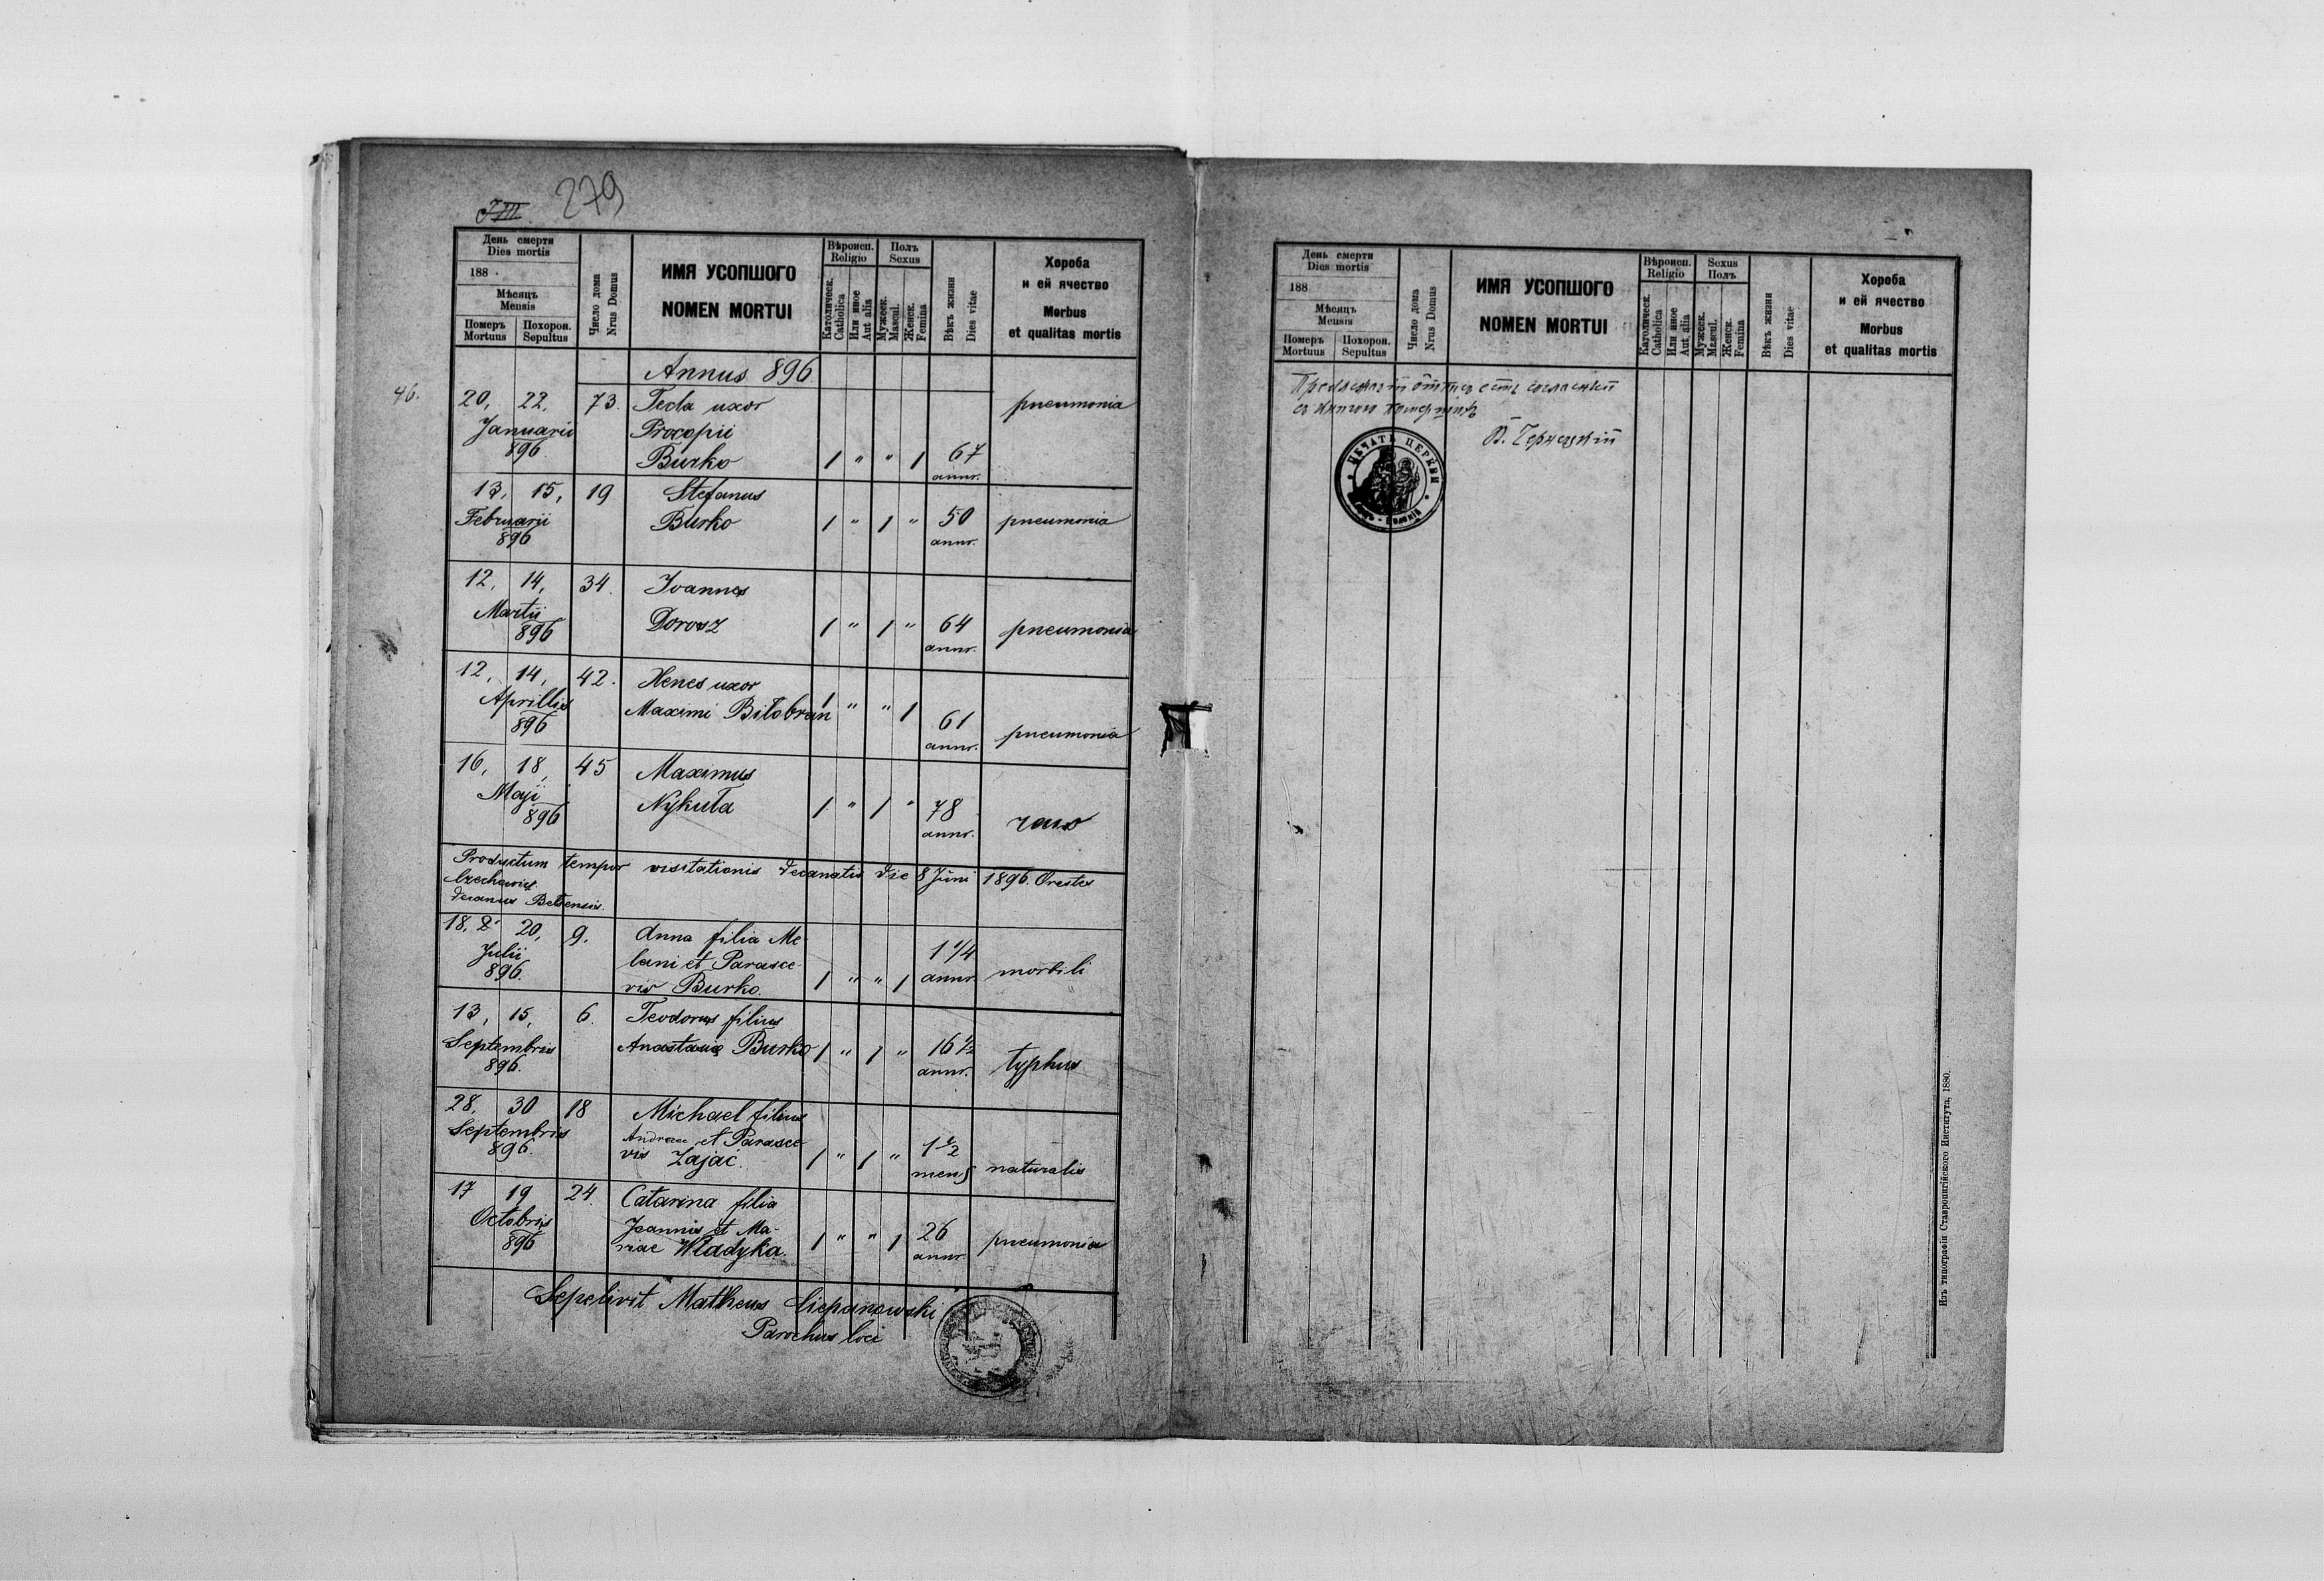 279
День смерти
Dies mortis
188
Мѣсяцъ
Mensis
Померъ Похорон.
Mortuus Sepultus
Число дома
Nrus Domus
ИМЯ УСОПШОГО
NOMEN MORTUI
Вѣроисп.
Religio
Католическ.
Catholica
Или иное
Aut alia
Полъ
Sexus
Мужеск.
Mascul.
Женск.
Femina
Вѣкъ жизни
Dies vitae
Хороба
и ей ячество
Morbus
et qualitas mortis
Annus 896.
46. 20, 22, 73. Tecla uxor pneumonia
Januarii Procopii
896 Burko 1 " " 1 67
annr.
13, 15, 19 Stefanus
Februarii Burko 1 " 1 " 50 pneumonia
896 annr.
12, 14, 34. Joannes
Martii Dorosz 1 " 1 " 64 pneumonia
896 annr.
12, 14, 42. Xenes uxor
Aprillis Maximi Biłobran 1 " " 1 61 pneumonia
896 annr.
16, 18, 45 Maximus
Maji Nykuła 1 " 1 " 78
896 annr.
Productum tempor visitationis decanatis die 8 Juni 1896. Orestes
Czechowicz
decanus Bełzensis.
18. 20, 9. Anna filia Me-
Julii lani et Parasce- 1 1/4
896. vis Burko. 1 " " 1 annr. morbili
13, 15, 6. Teodorus filius
Septembris Anastasiae Burko 1 " 1 " 16 1/2 typhus
896. annr.
28, 30 18 Michael filius
Septembris Andreae et Parasce-
896. vis Zając. 1 " 1 " 1 1/2 naturalis
mens
17 19 24. Catarina filia
Octobris Joannis et Ma-
896 riae Władyka. 1 " " 1 26 pneumonia
annr.
Sepelivit Matheus Ciepanowski
Parochus loci
День смерти
Dies mortis
188
Мѣсяцъ
Mensis
Померъ Похорон.
Mortuus Sepultus
Число дома
Nrus Domus
ИМЯ УСОПШОГО
NOMEN MORTUI
Вѣроисп.
Religio
Католическ.
Catholica
Или иное
Aut alia
Sexus
Полъ
Мужеск.
Mascul.
Женск.
Femina
Вѣкъ жизни
Dies vitae
Хороба
и ей ячество
Morbus
et qualitas mortis
ПЕЧАТЬ ЦЕРКВИ
Изъ типографіи Ставропигійского Института, 1880.